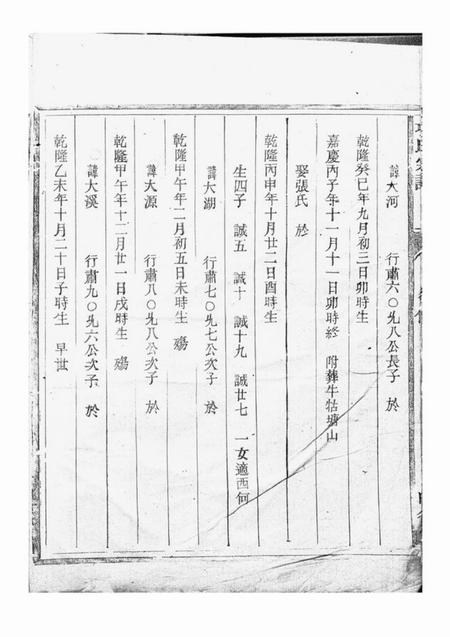 諱大河 行肅六〇先八公長子 於
乾隆癸巳年九月初三日卯時生
嘉慶丙子年十一月十一日卯時終 附葬牛牯塘山
娶張氏 於
乾隆丙申年十月廿二日酉時生
生四子 誠五 誠十 誠十九 誠廿七 一女適西何
諱大湖 行肅七〇先七公次子 於
乾隆甲午年二月初五日未時生 殤
諱大源 行肅八〇先八公次子 於
乾隆甲午年十二月廿一日戌時生 殤
諱大溪 行肅九〇先六公次子 於
乾隆乙未年十月二十日子時生 早世